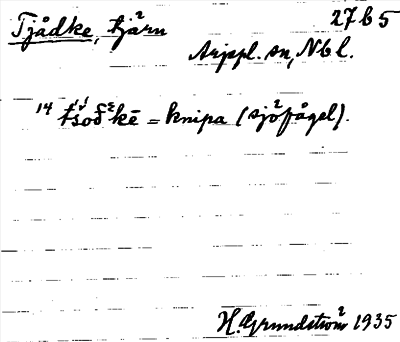 Tjådke, tjärn 27 b 5
Arjepl. sn, Nbl.
14 tsoδ²kē = knipa (sjöfågel).
H. Grundström 1935